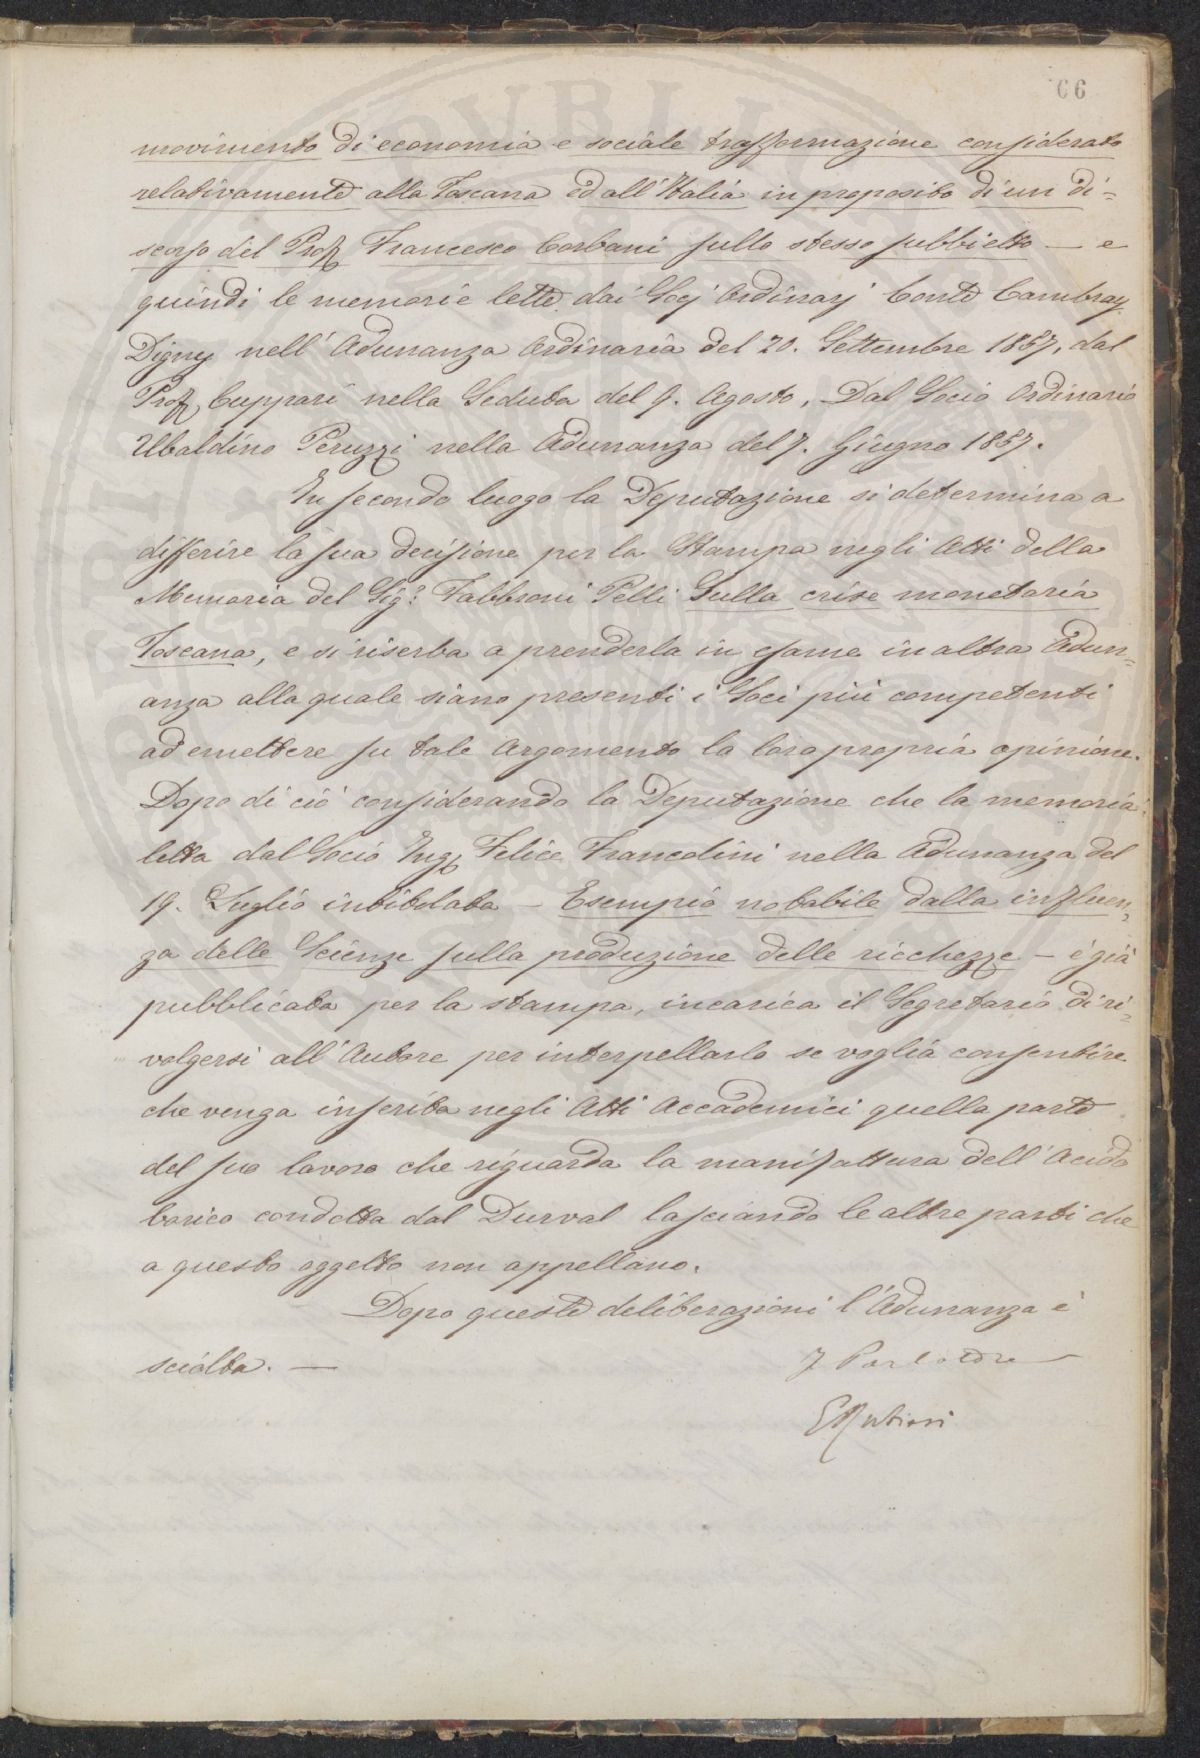 66
movimento di economia e sociale trasformazione considerato
relativamente alla Toscana ed all'Italia in proposito di un di=
scorso del Prof. Francesco Corbani sullo stesso subbietto — e
quindi le memorie lette dai Socj Ordinarj Conte Cambray
Digny nell'Adunanza Ordinaria del 20. Settembre 1857, dal
Prof. Cuppari nella Seduta del 9. Agosto, Dal Socio Ordinario
Ubaldino Peruzzi nella Adunanza del 7. Giugno 1857.
In secondo luogo la Deputazione si determina a
differire la sua decisione per la Stampa negli Atti della
Memoria del Sig: Fabbroni Pelli Sulla crise monetaria
Toscana, e si riserba a prenderla in esame in altra Adun=
anza alla quale siano presenti i Soci più competenti
ad emettere su tale Argomento la loro propria opinione.
Dopo di ciò considerando la Deputazione che la memoria
letta dal Socio Ing. Felice Francolini nella Adunanza del
19. Luglio intitolata — Esempio notabile dalla influen=
za delle Scienze sulla produzione delle ricchezze — è già
pubblicata per la stampa, incarica il Segretario di ri=
volgersi all'Autore per interpellarlo se voglia consentire
che venga inserita negli Atti Accademici quella parte
del suo lavoro che riguarda la manifattura dell'Acido
borico condotta dal Durval lasciando le altre parti che
a questo oggetto non appellano.
Dopo queste deliberazioni l'Adunanza è
sciolta. —
E Rubieri